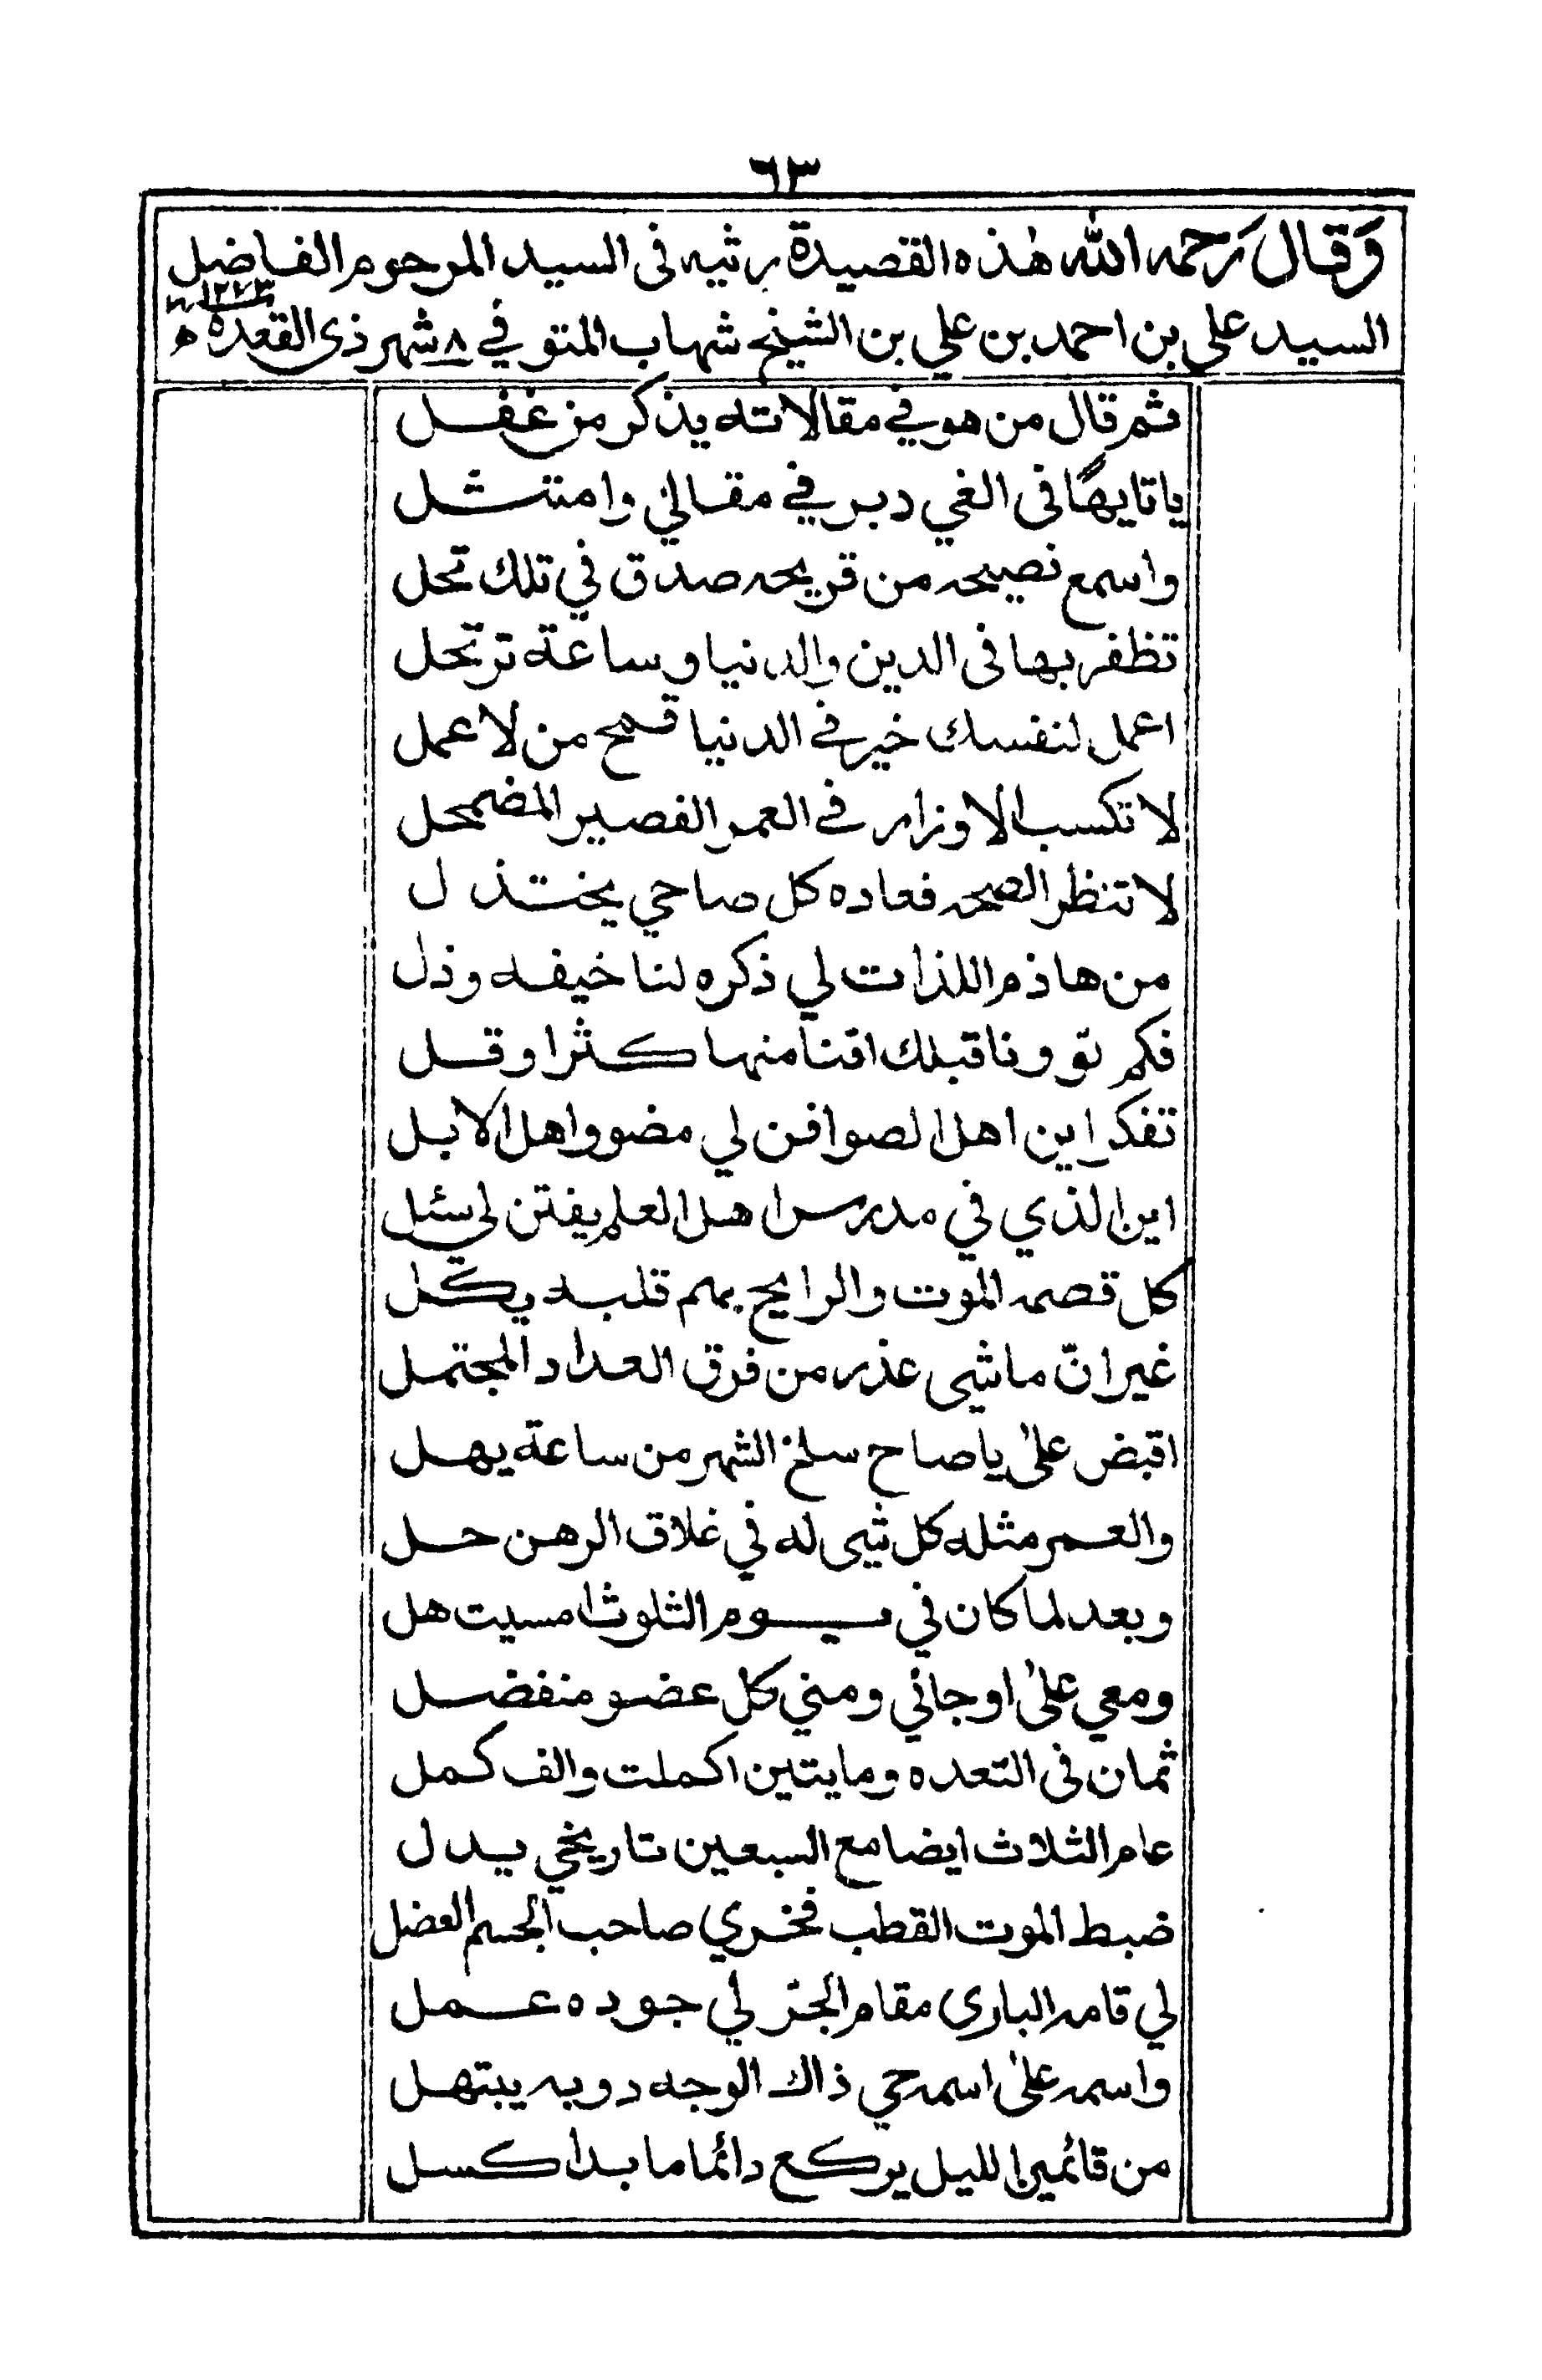 ٦٣
وَقال رَحمه الله هٰذه القصيدة رثيه فى السيد المرحوم الفاضل
السيد علي بن احمد بن علي بن الشيخ شهاب المتوفي ٨ شهر ذى القعده ١٢٧٣ ه
ثم قال من هو في مقالاته يذكر من غفل
يا تايهًا فى الغي دبر في مقالي وامتثل
واسمع نصيحه من قريحه صدق في تلك تحل
تظفر بها فى الدين والدنيا وساعة ترتحل
اعمل لنفسك خير في الدنيا قمح من لا عمل
لا تكسب الاوزار في العمر القصير المضمحل
لا تنظر الصحه فعاده كل صاحي يختذل
من هاذم اللذات لي ذكره لنا خيفه وذل
فكم توونا قبلك اقنا منها كثرا وقل
تفكر اين اهل الصوافن لي مضو واهل الابل
اين الذي في مدرس اهل العلم يفتن لي سئل
كل قصمه الموت والرايح بهم قلبه يكل
غير انّ ماشى عذر من فرق العداد المجتمل
اقبض علىٰ يا صاح سلخ الشهر من ساعة يهل
والعمر مثله كل شى له في غلاق الرهن حل
وبعد لما كان في يوم الثلوثا مسيت هل
ومعي علىٰ اوجائي ومني كل عضو منفضل
ثمان فى القعده ومايتين اكملت والف كمل
عام الثلاث ايضا مع السبعين تاريخي يدل
ضبط الموت القطب فخري صاحب الجسم العضل
لي قامه البارى مقام الجز لي جوده عمل
واسمه علىٰ اسمه حي ذاك الوجه دوبه يبتهل
من قائمين الليل يركع دائما ما بدا كسل